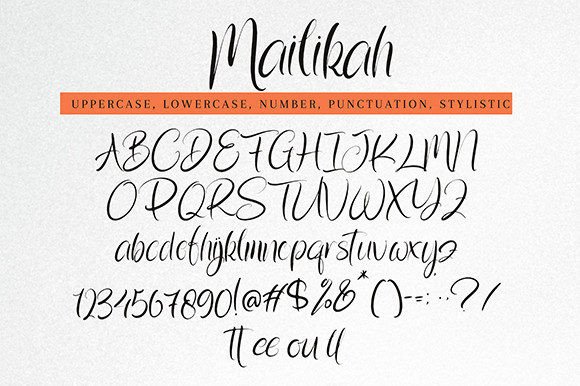 Mailikah
UPPERCASE, LOWERCASE, NUMBER, PUNCTUATION, STYLISTIC
ABCDEFGHIJKLMN
OPQRSTUVWXYZ
abcdefghijklmnopqrstuvwxyz
1234567890!@#$%&*()-=:..?/
tt ee ou ll